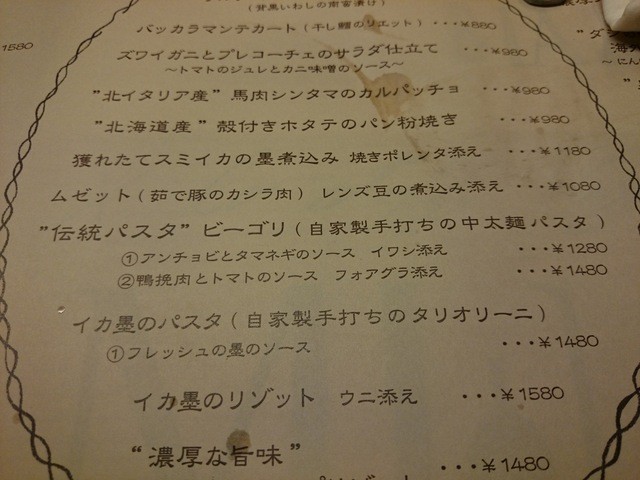 (背黒いわしの南蛮漬け)
バッカラマンテカート(干し鱈のリエット) ・・・¥880
ズワイガニとプレコーチェのサラダ仕立て ・・・¥980
～トマトのジュレとカニ味噌のソース～
"北イタリア産" 馬肉シンタマのカルパッチョ ・・・¥980
"北海道産" 殻付きホタテのパン粉焼き ・・・¥980
獲れたてスミイカの墨煮込み 焼きポレンタ添え ・・・¥1180
ムゼット(茹で豚のカシラ肉) レンズ豆の煮込み添え ・・・¥1080
"伝統パスタ" ビーゴリ(自家製手打ちの中太麺パスタ)
①アンチョビとタマネギのソース イワシ添え ・・・¥1280
②鴨挽肉とトマトのソース フォアグラ添え ・・・¥1480
イカ墨のパスタ(自家製手打ちのタリオリーニ)
①フレッシュの墨のソース ・・・¥1480
イカ墨のリゾット ウニ添え ・・・¥1580
"濃厚な旨味"
・・・¥1480
1580
"ダ
海
～にん